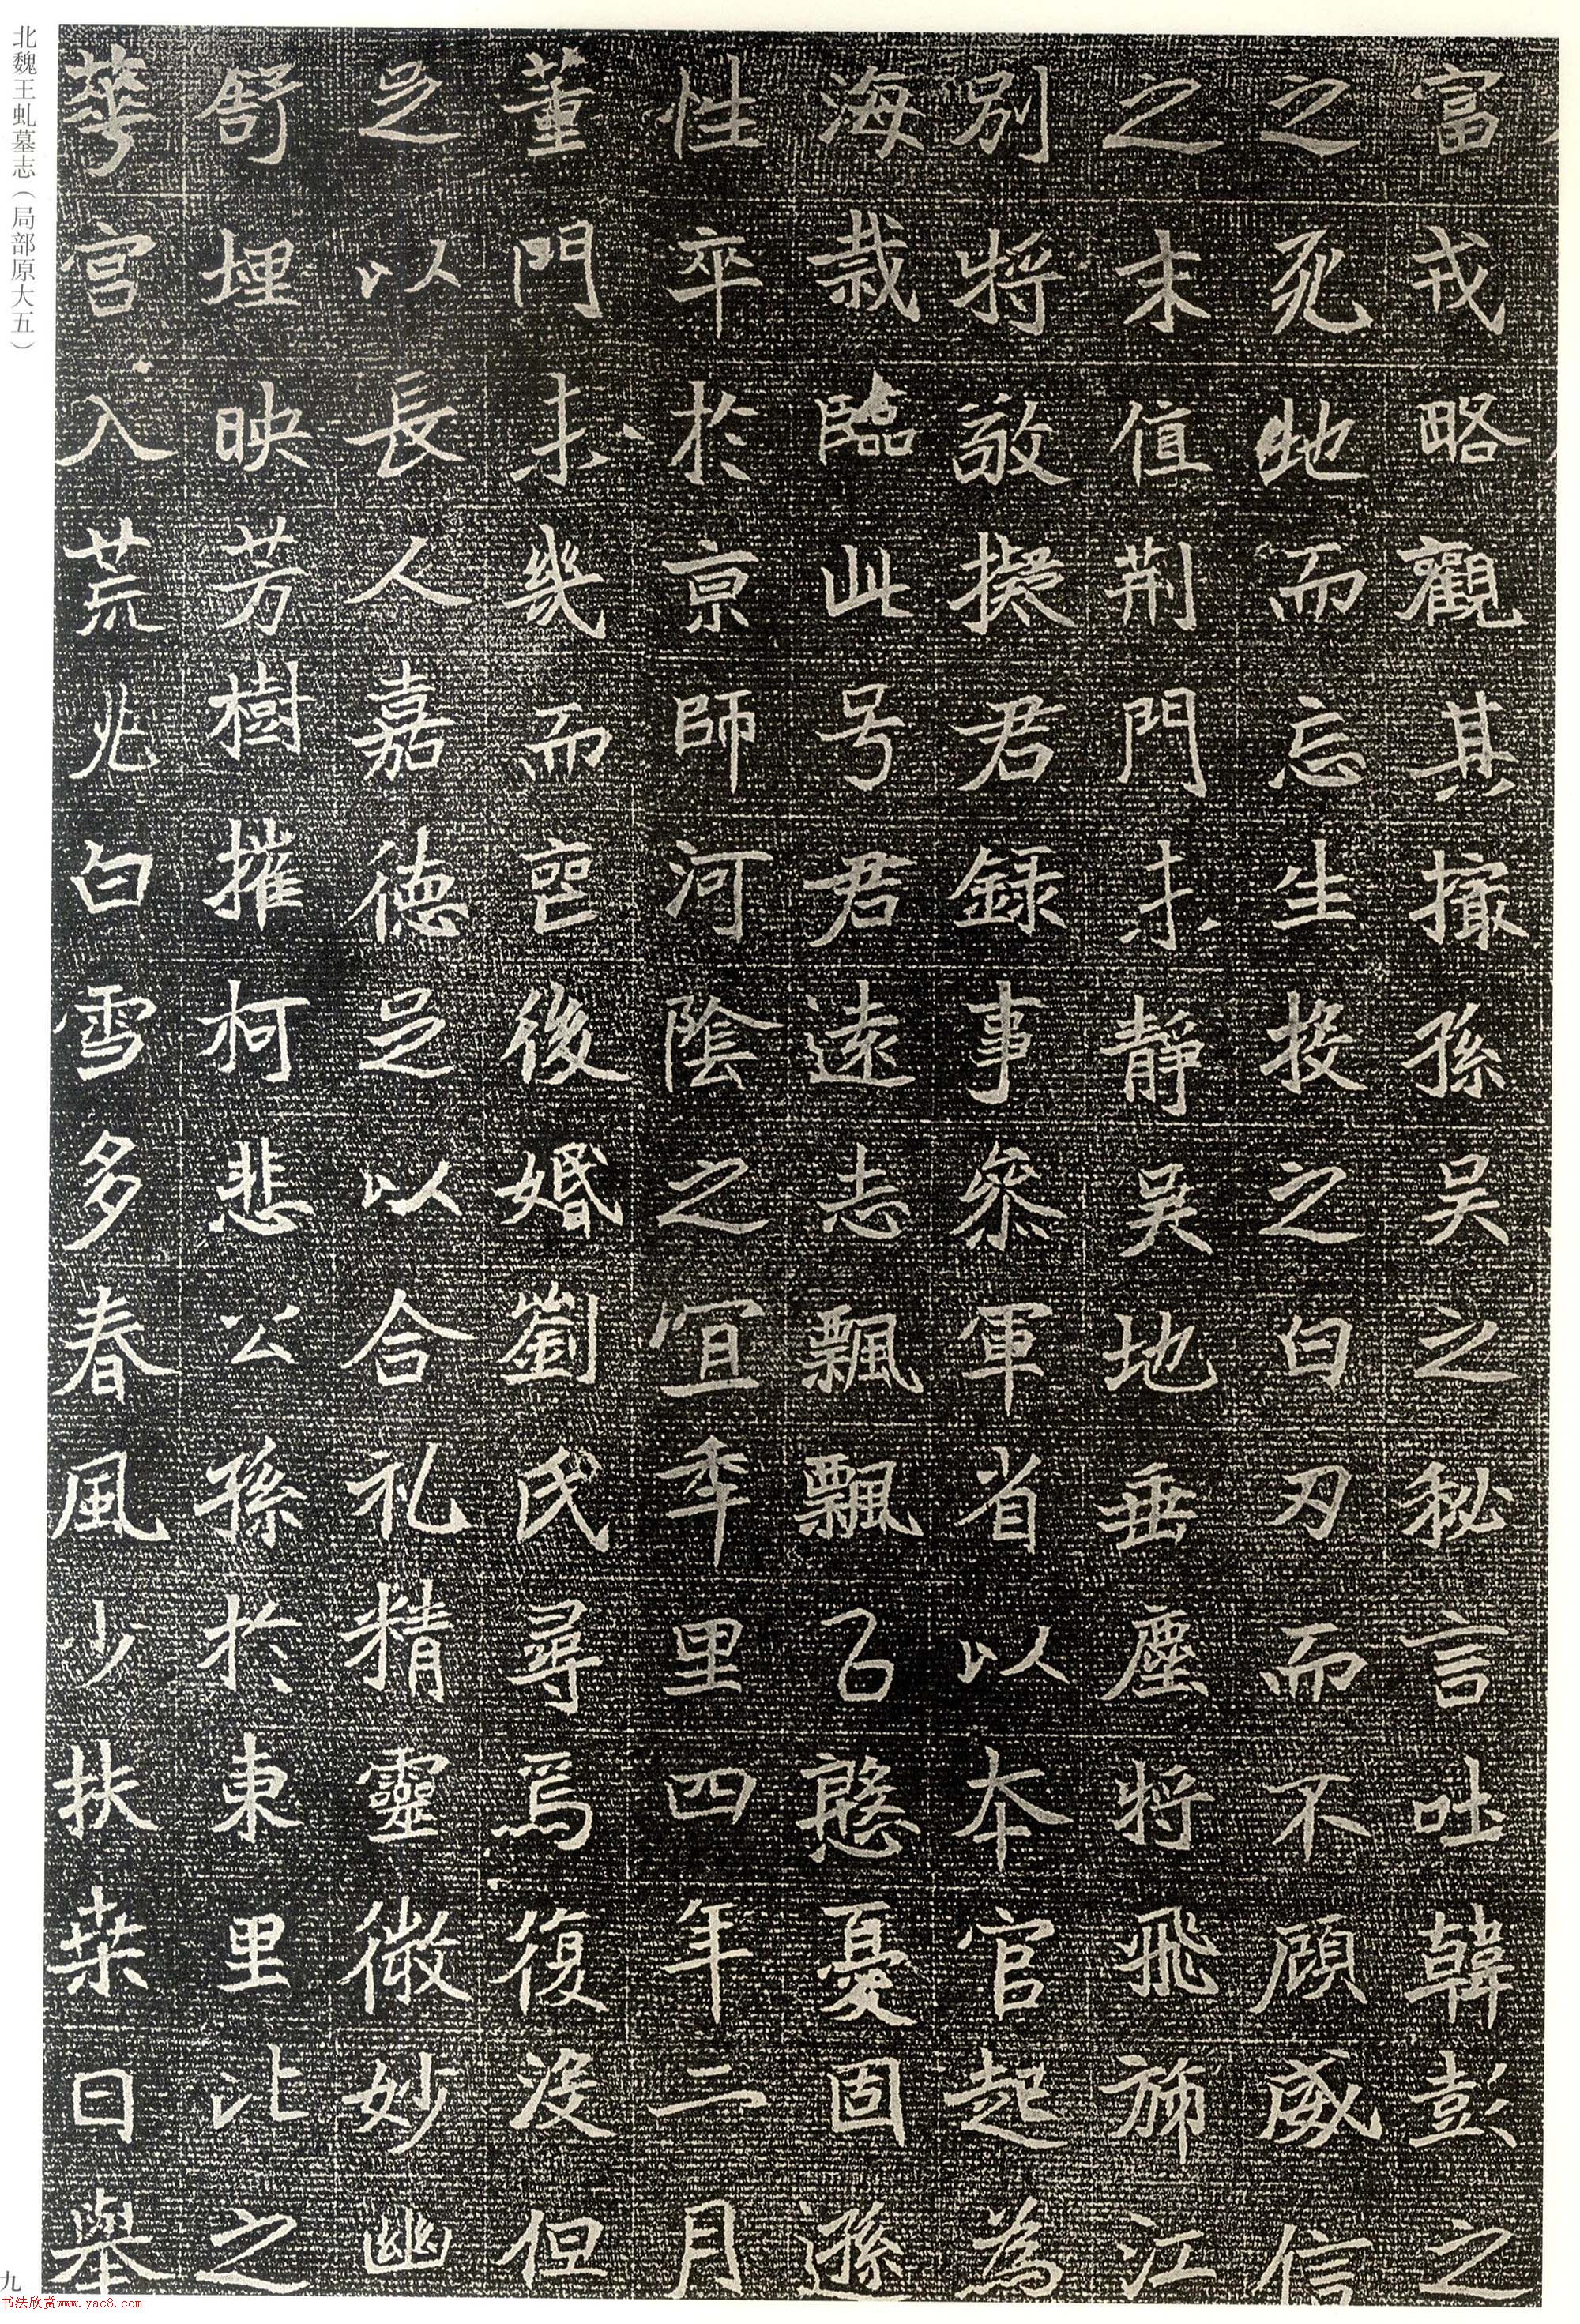 富戎略觀其撮孫吴之秘言吐韓彭之
之死地而忘生投之白刃而不顧威信
之末值荆門未静吴地垂塵将飛斾江
别将敬擬君録事叅軍省以本官起為
海裁臨此号君遠志飄飄乃慭憂固遜
性卒於京師河陰之宜年里四年二月
董門未幾而亡後婚劉氏尋焉復没但
足以長人嘉德足以合礼精靈微妙幽
舒埋映芳樹摧柯悲公孫於東里比之
華宫入荒兆白雪多春風少扶桒日舉
北魏王虬墓志（局部原大五）
九
书法欣赏www.yac8.com